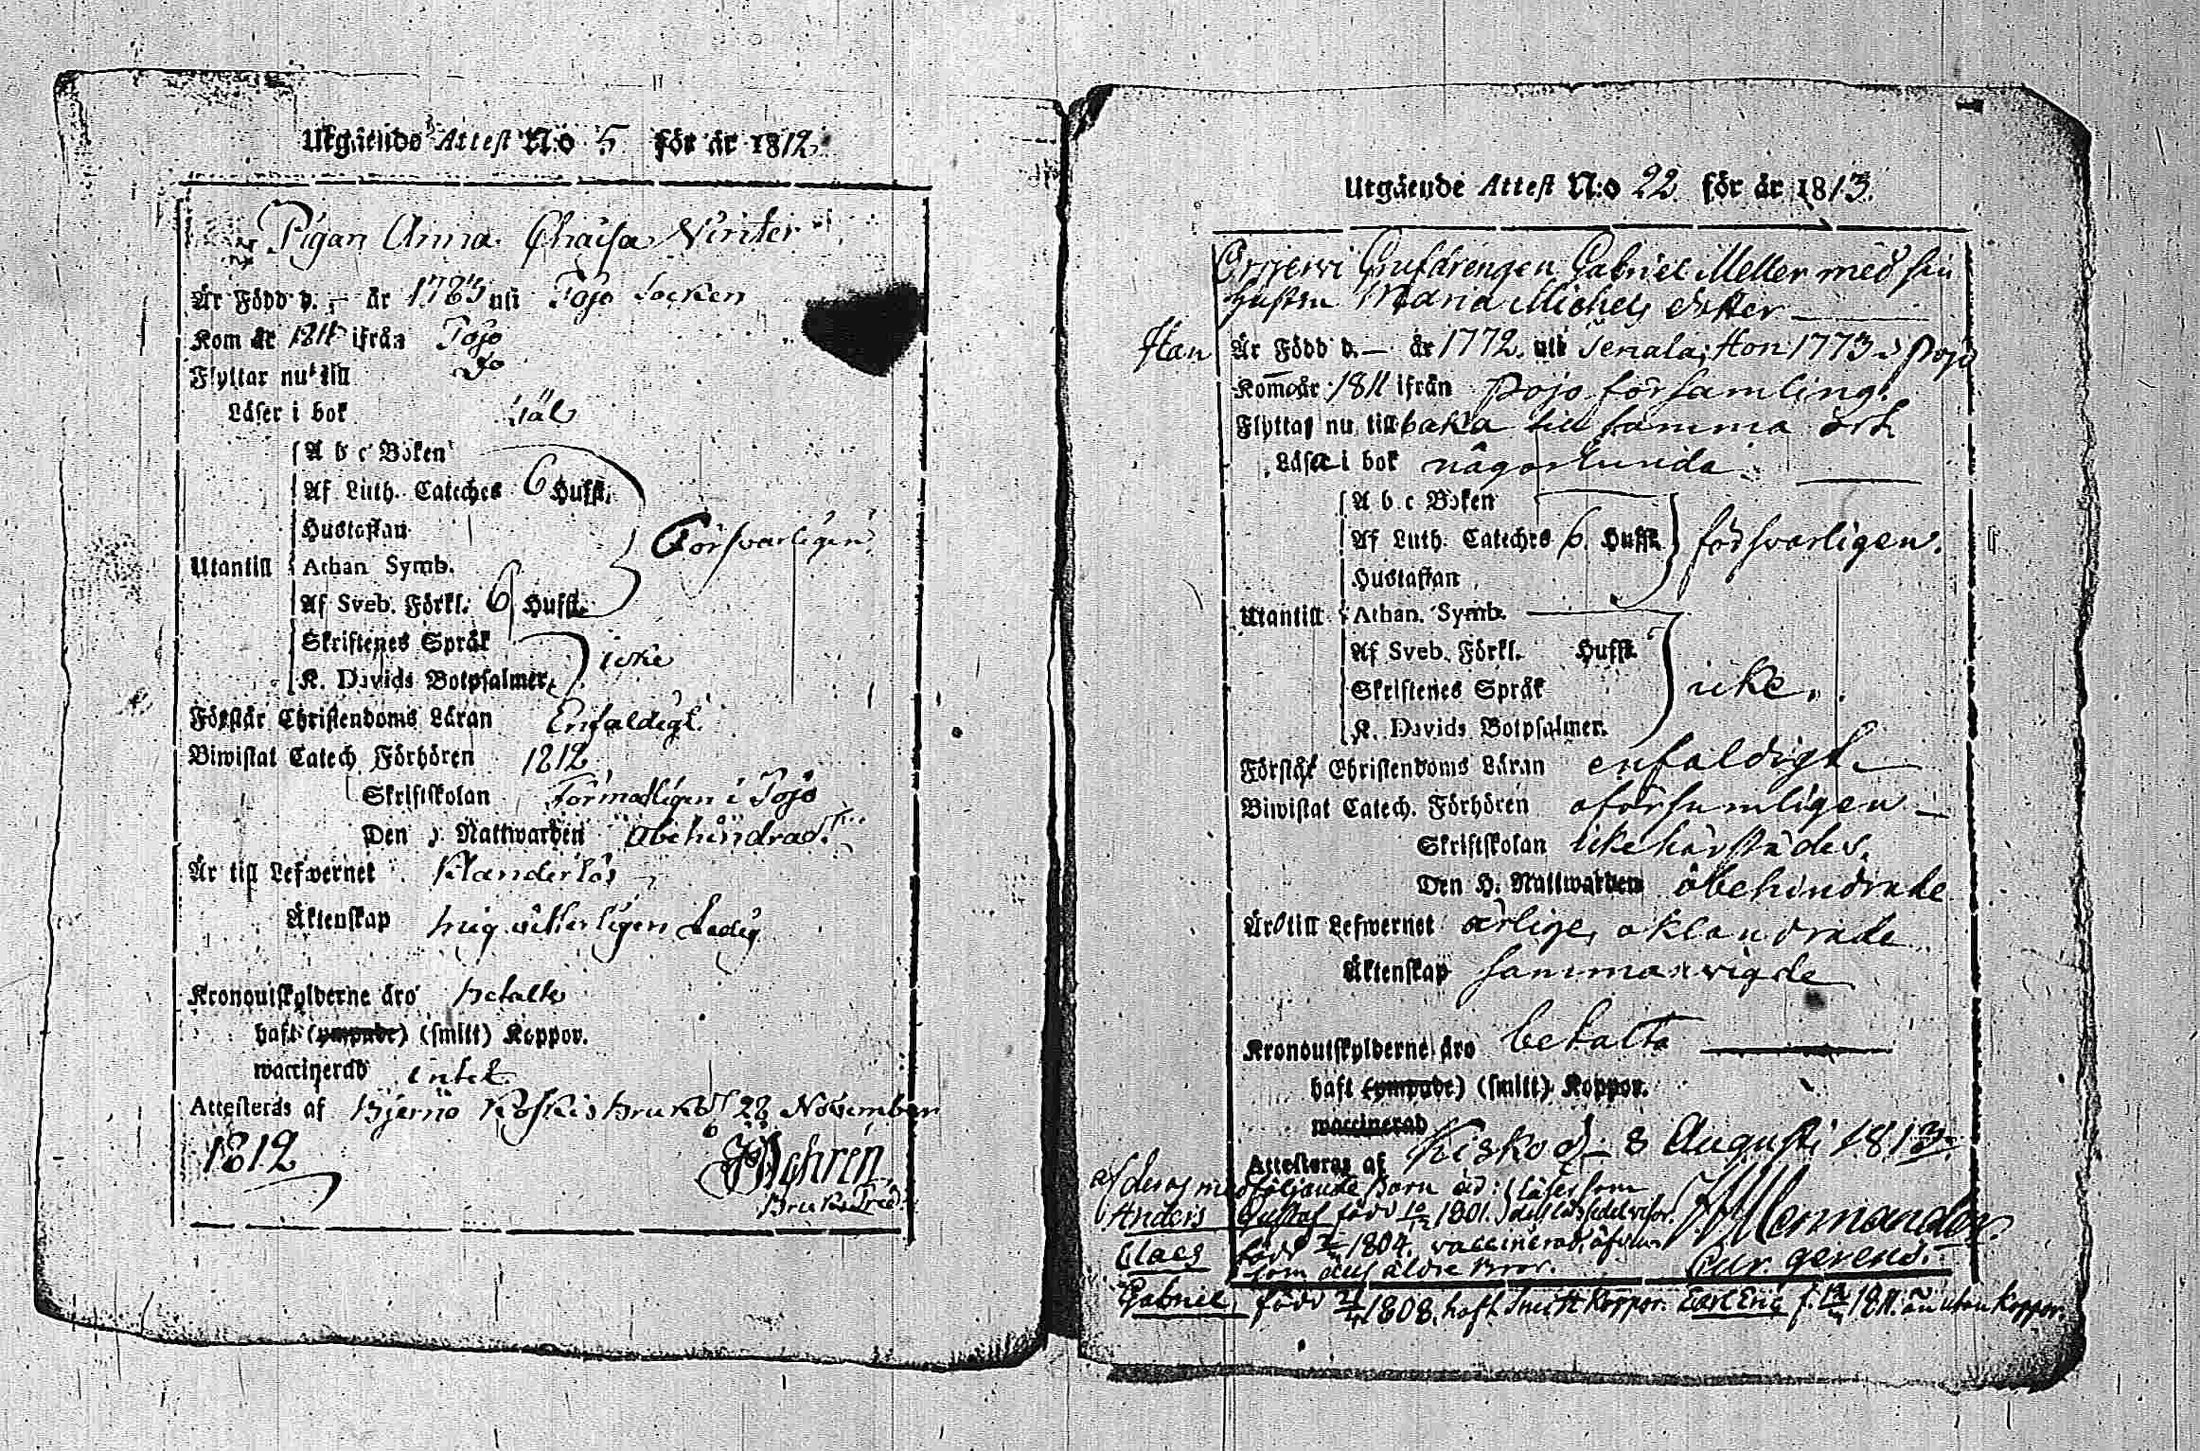 Utgående Attest N:o 5 för år 1812.
Pigan Anna Chaisa Winter
Är Född d. — år 1785 uti Pojo Socken
Kom år 1811 ifrån Pojo
Flyttar nu till Do
Läser i bok väl
A b c Boken
Af Luth. Cateches 6 Hufst.
Hustaflan
Försvarligen
Utantill Athan Symb.
Af Sveb. Förkl. 6 Hufst.
Skriftenes Språk
icke
K. Davids Botpsalmer.
Förstår Christendoms Läran Enfaldigt.
Biwistat Catech. Förhören 1812
Skriftskolan Förmodligen i Pojo
Den Nattwarden Obehindrad.
Är till Lefwernet Klanderlös
Äktenskap mig veterligen Ledig
Kronoutskylderne äro betalte
haft (ympade) (smitt) Koppor.
waccinerad intet.
Attesteras af Bjerno Koskis Bruk d 28 November
1812
Bruks Pred.
Utgående Attest N:o 22 för år 1813.
Gabriel Meller med sin
hustru Maria Michels dotter
Han Är Född d. — år 1772. uti Tenala, Hon 1773 i Pojo
Kom år 1811 ifrån Pojo församling.
Flyttar nu till baka till samma ort
Läsa i bok någorlunda
A b c Boken
Af Luth. Cateches 6. Hufst. försvarligen.
Hustaflan
Utantill Athan. Symb.
Af Sveb. Förkl. Hufst.
Skriftenes Språk icke.
K. Davids Botpsalmer.
Förstår Christendoms Läran enfaldigt
Biwistat Catech. Förhören oförsumligen
Skriftskolan icke härstädes.
Den H. Nattwarden obehindrade
Är till Lefwernet ärlige, oklandrade
Äktenskap sammanvigde
Kronoutskylderne äro betalta
haft (ympade) (smitt) Koppor.
waccinerad
Attesteras af Kisko d. 8 Augusti 1813.
af deras medföljande Barn är: läser som
Anders Gustaf född 1801.
Claes född 1804. vaccinerad, äfven
som dess äldre Bror. Cur. gerens.
Gabriel född 1808. haft Smitt Koppor. Carl Eric f. 1811. än utan koppor.